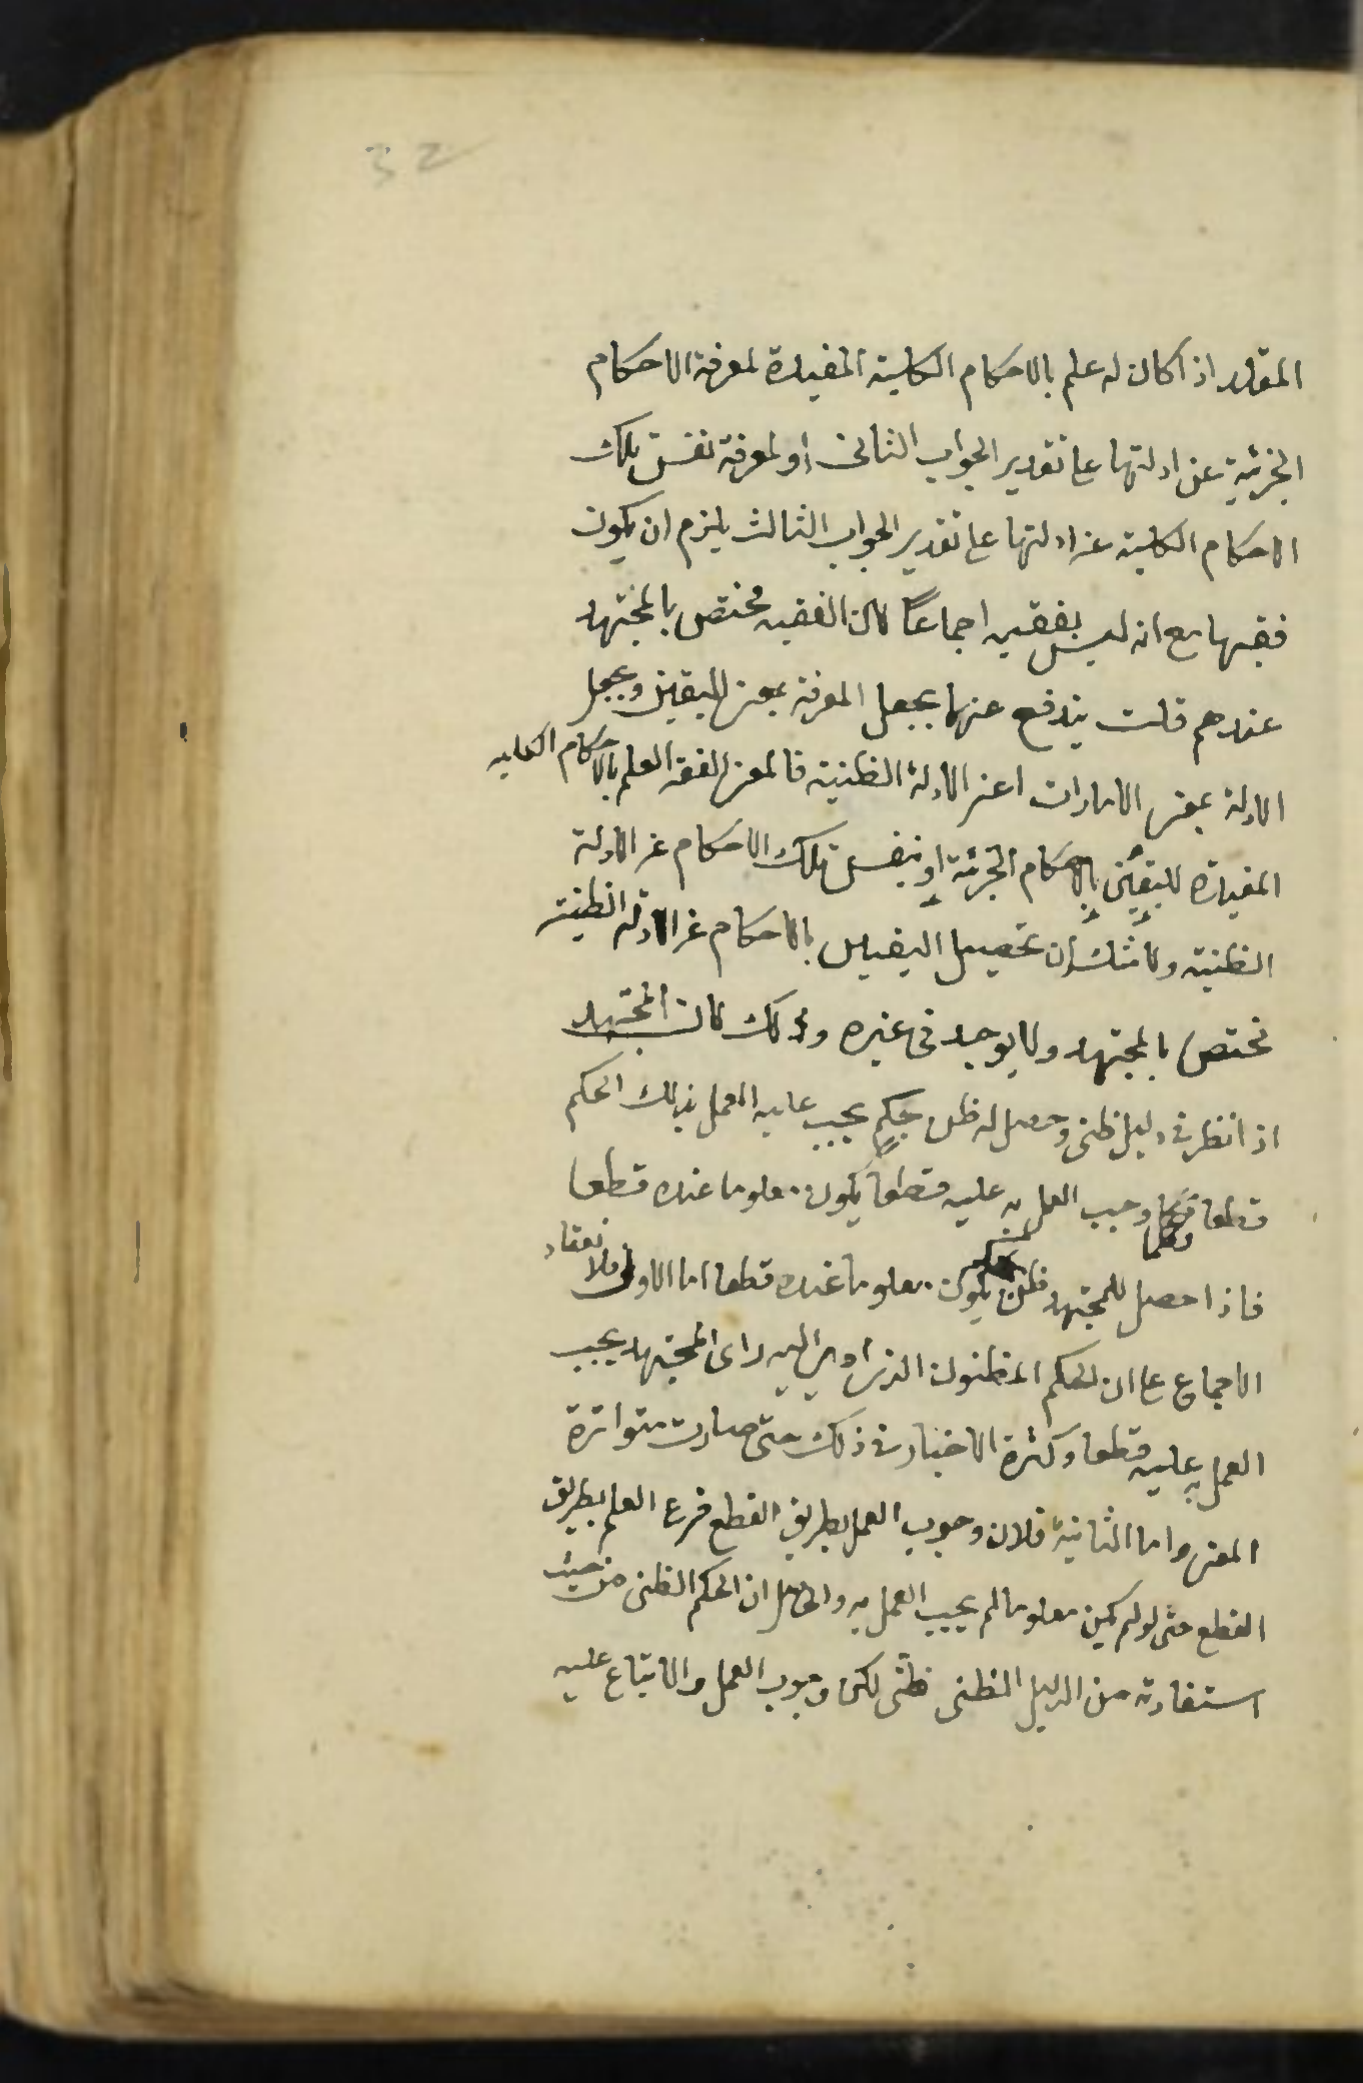 32
المقلد اذا كان له علم بالاحكام الكلية المفيدة لمعرفة الاحكام
الجزئية عن ادلتها على تقدير الجواب الثانى او لمعرفة نفس تلك
الاحكام الكلية عن ادلتها على تقدير الجواب الثالث يلزم ان يكون
فقيها مع انه ليس بفقيه اجماعاً لان الفقيه مختص بالمجتهد
عندهم قلت يندفع عنهما بجعل المعرفة بمعنى اليقين وبجعل
الادلة بمعنى الامارات اعنى الادلة الظنية فالمعنى الفقه العلم بالاحكام الكلية
المفيدة لليقين بالاحكام الجزئية او بنفس تلك الاحكام عن الادلة
الظنية ولا شك ان تحصيل اليقين بالاحكام عن الادلة الظنية
مختص بالمجتهد ولا يوجد فى غيره وذلك لان المجتهد
اذا نظر فى دليل ظنى وحصل له ظن بحكم يجب عليه العمل بذلك الحكم
قطعا وكلما وجب العمل به عليه قطعا يكون معلوما عنده قطعا
فاذا حصل للمجتهد ظن بحكم يكون معلوما عنده قطعا اما الاولى فلانعقاد
الاجماع على ان الحكم المظنون الذى ادى اليه راى المجتهد يجب
العمل به عليه قطعا وكثرة الاخبار فى ذلك حتى صارت متواترة
المعنى واما الثانية فلان وجوب العمل بطريق القطع فرع العلم بطريق
القطع حتى لو لم يكن معلوما لم يجب العمل به والحاصل ان الحكم الظنى من حيث
استفادته من الدليل الظنى ظنى لكن وجوب العمل والاتباع عليه